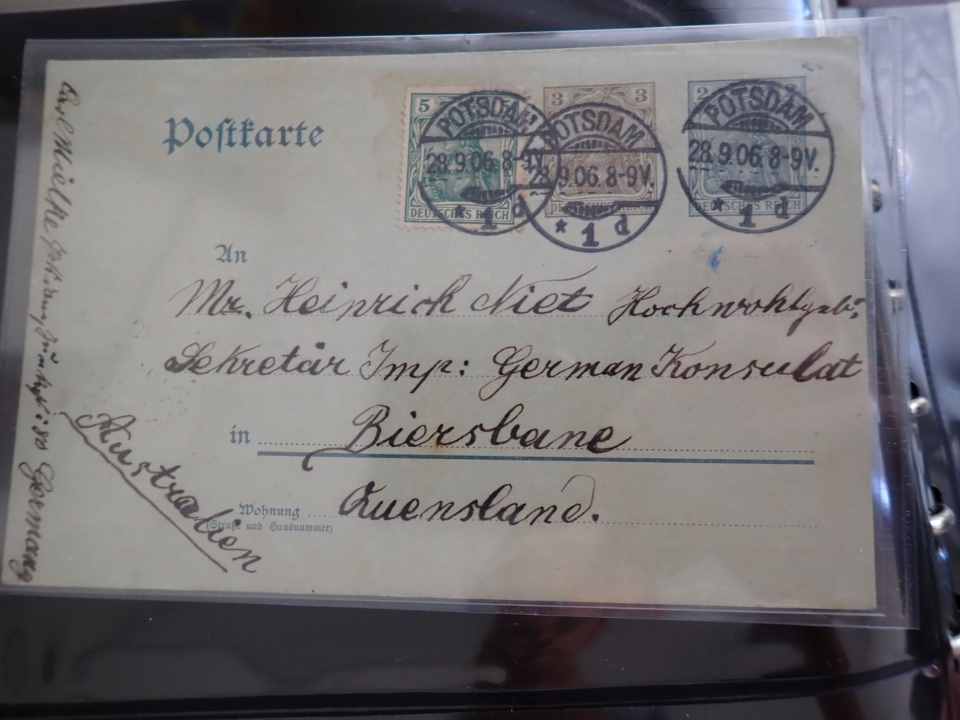 Postkarte
5
3
3
2
POTSDAM
28.9.06.8-9V.
* 1 d
POTSDAM
28.9.06.8-9V.
* 1 d
POTSDAM
28.9.06.8-9V.
* 1 d
DEUTSCHES REICH
DEUTSCHES REICH
DEUTSCHES REICH
An
Mr. Heinrich Niet Hochwohlgeb.
Sekretär Imp: German Konsulat
in Biersbane
Wohnung Quensland.
(Straße und Hausnummer)
Australien
Carl Mielke Germany